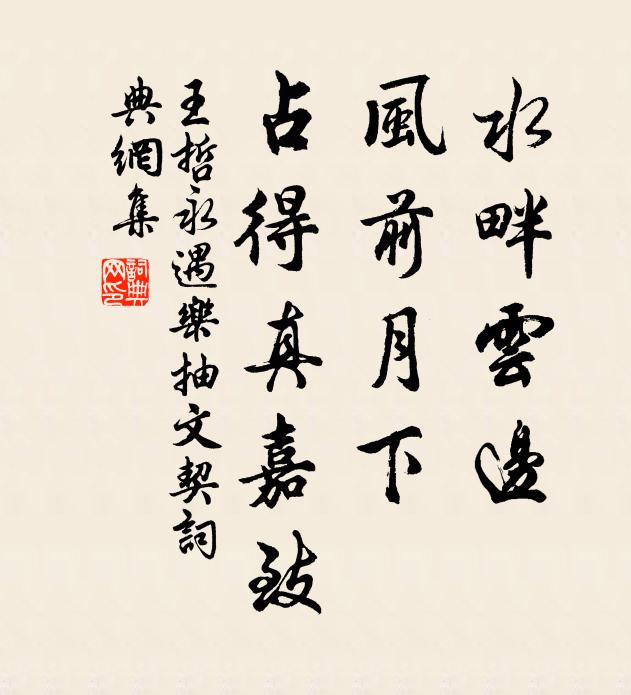 水畔雲邊
風前月下
占得真嘉致
王哲永遇樂抽文契詞
典網集
詞典
网印